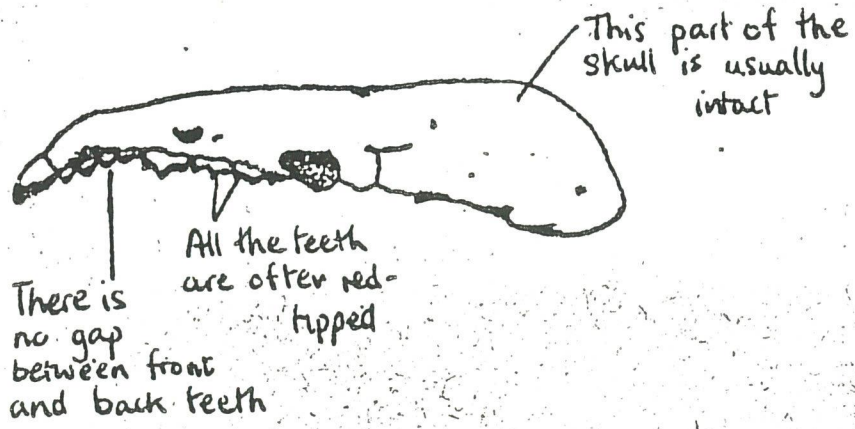 This part of the
skull is usually
intact
All the teeth
are often red-
tipped
There is
no gap
between front
and back teeth